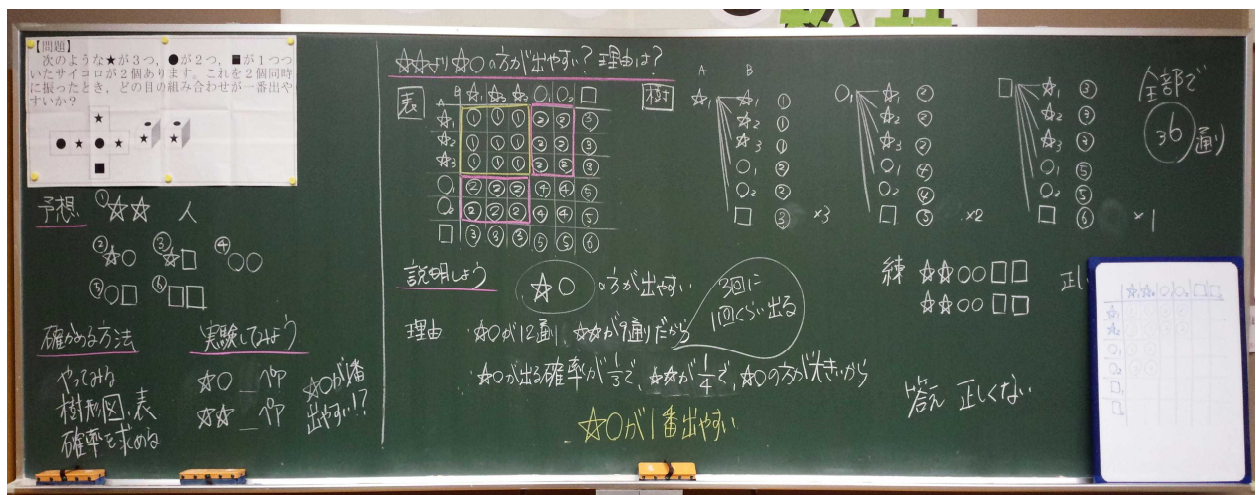 【問題】
次のような★が3つ，●が2つ，■が1つつ
いたサイコロが2個あります。これを2個同時
に振ったとき，どの目の組み合わせが一番出や
すいか？
予想 ①☆☆ 人
②☆○ ③☆□ ④○○
⑤○□ ⑥□□
確かめる方法
やってみる
樹形図、表
確率を求める
実験してみよう
☆○ _ ペア
☆☆ _ ペア
☆○が1番
出やすい!?
☆☆より☆○の方が出やすい？理由は？
表
B ☆₁ ☆₂ ☆₃ ○₁ ○₂ □
☆₁ ① ① ① ② ② ③
☆₂ ① ① ① ② ② ③
☆₃ ① ① ① ② ② ③
○₁ ② ② ② ④ ④ ⑤
○₂ ② ② ② ④ ④ ⑤
□ ③ ③ ③ ⑤ ⑤ ⑥
樹
A B
☆₁ ☆₁ ①
☆₂ ①
☆₃ ①
○₁ ②
○₂ ②
□ ③ ×3
○₁ ☆₁ ②
☆₂ ②
☆₃ ②
○₁ ④
○₂ ④
□ ⑤ ×2
□ ☆₁ ③
☆₂ ③
☆₃ ③
○₁ ⑤
○₂ ⑤
□ ⑥ ×1
全部で
36通り
説明しよう
☆○の方が出やすい
理由 ☆○が12通り、☆☆が9通りだから
3回に
1回くらい出る
☆○が出る確率が1/3で、☆☆が1/4で、☆○の方が大きいから
☆○が1番出やすい
練 ☆☆○○□□ 正し
☆☆○○□□
答え 正しくない